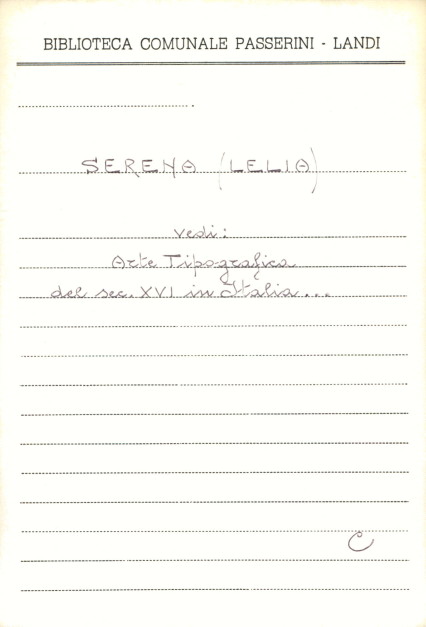 BIBLIOTECA COMUNALE PASSERINI - LANDI
SERENA (LELIA)
vedi:
Arte Tipografica
del sec. XVI in Italia...
C